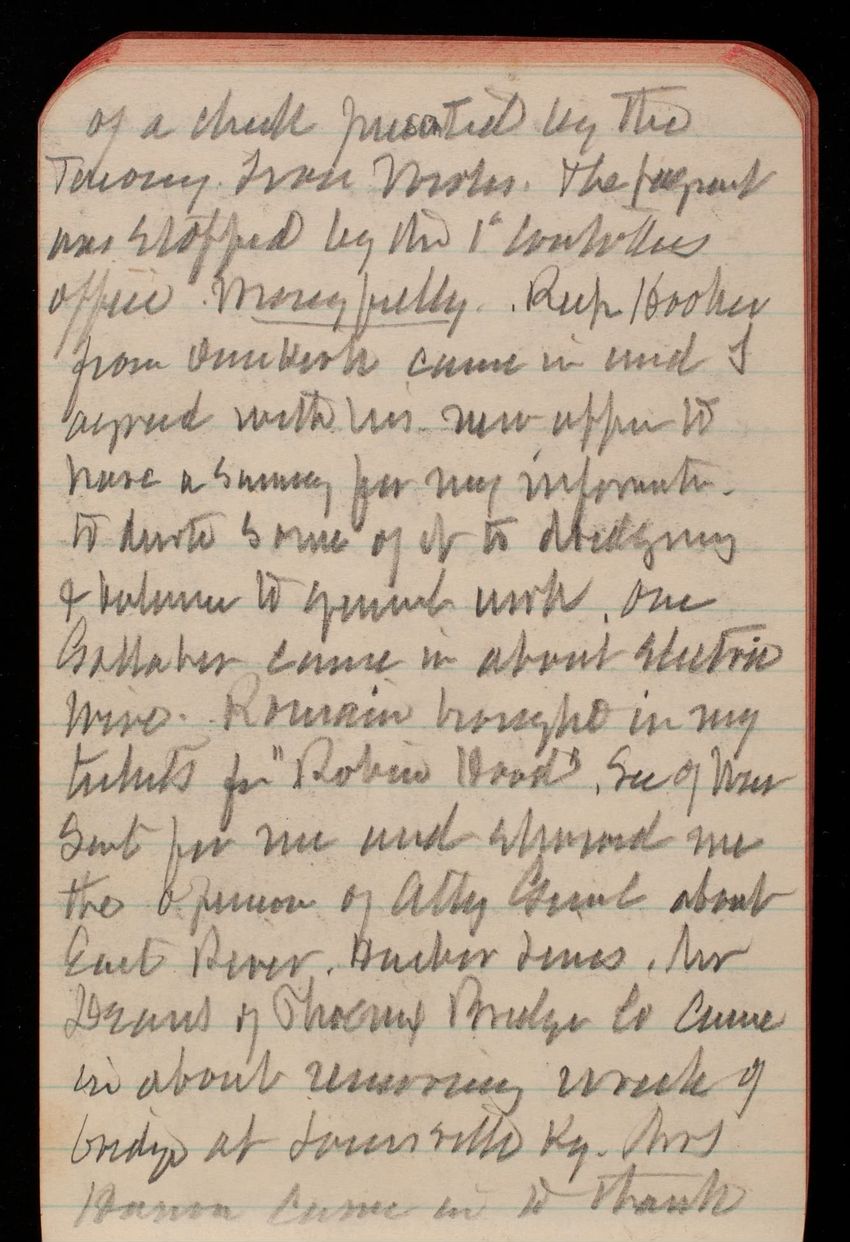 of a check presented by the
Iron Works. The payment
was stopped by the 1st Controllers
office. Rep Hooker
from Dunkirk came in and I
agreed with his new offer to
have a survey for my informatn.
to devote some of it to dredging
& balance to general work. One
Gallaher came in about Electric
wires. Romain brought in my
tickets for "Robin Hood". Sec of War
sent for me and showed me
the opinion of Atty Genl about
East River. Harbor Lines. Mr
Deans of Phoenix Bridge Co Came
in about removing wreck of
bridge at Louisville Ky. Mrs
came in to thank